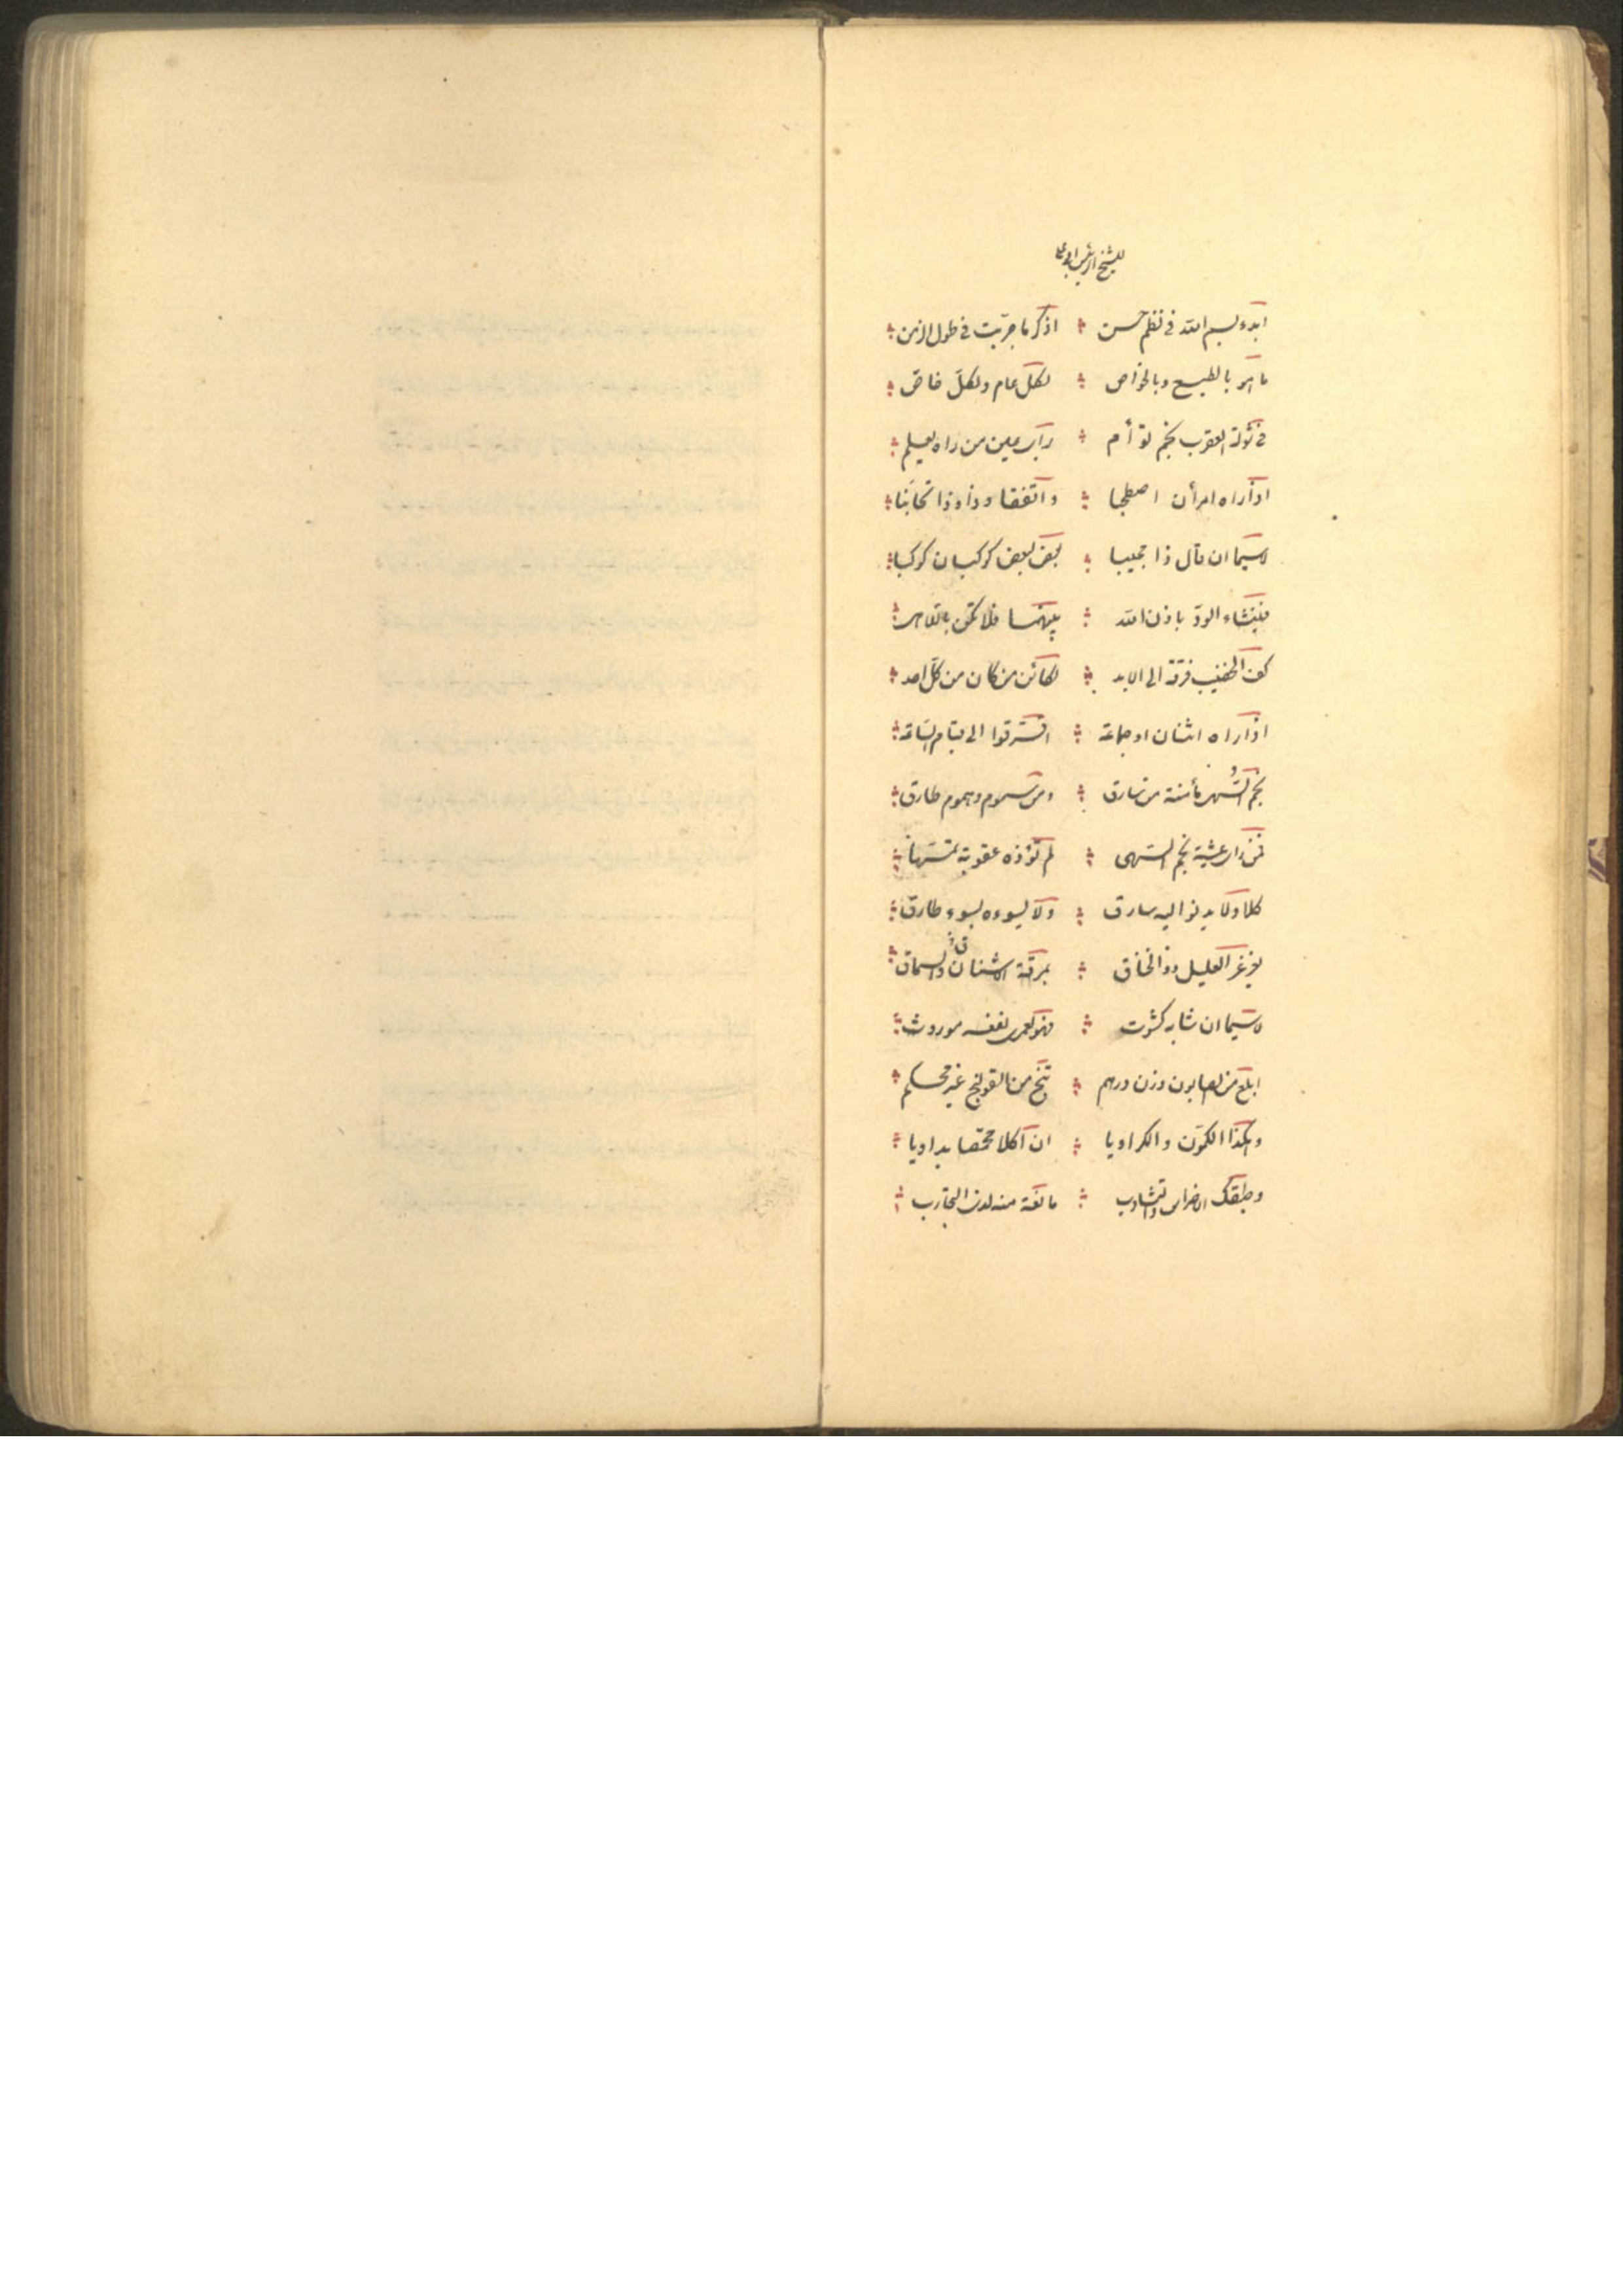 للشيخ الرئيس ابو على
ابدء بسم الله فى نظم حسن اذكر ما جربت فى طول الزمن
ما هو بالطبع وبالخواص لكل عام ولكل خاص
فى شولة العقرب نجم توأم راى عين من راه يعلم
اذا راه امرأن اصطحبا واتفقا وذا وذا تحاببا
لاسيما ان قال ذا مجيبا بعض لبعض كوكب ان كوكبا
فينشاء الود باذن الله بينهما فلا تكن باللاهى
كف الخضيب فرقة الى الابد لكائن من كان من كل احد
اذا راه اثنان او جماعة افترقوا الى قيام الساعة
نجم السهى مأمنة من سارق ومن سموم وهموم طارق
فمن راى عشية نجم السهى لم تؤذه عقربة تمسها
كلا ولا يدنو اليه سارق ولا يسوءه بسوء طارق
يغرغر العليل ذو الخناق بمرقة الاشنان والسماق
لاسيما ان شابه كشوث فهو لعمرى نفعه موروث
ابلع من الصابون وزن درهم تنج من القولنج غير محكم
وهكذا الكمون والكراويا ان اكلا محمصا يداويا
وطبقك الاضراس والتثاوب مانعة منه لدى التجارب